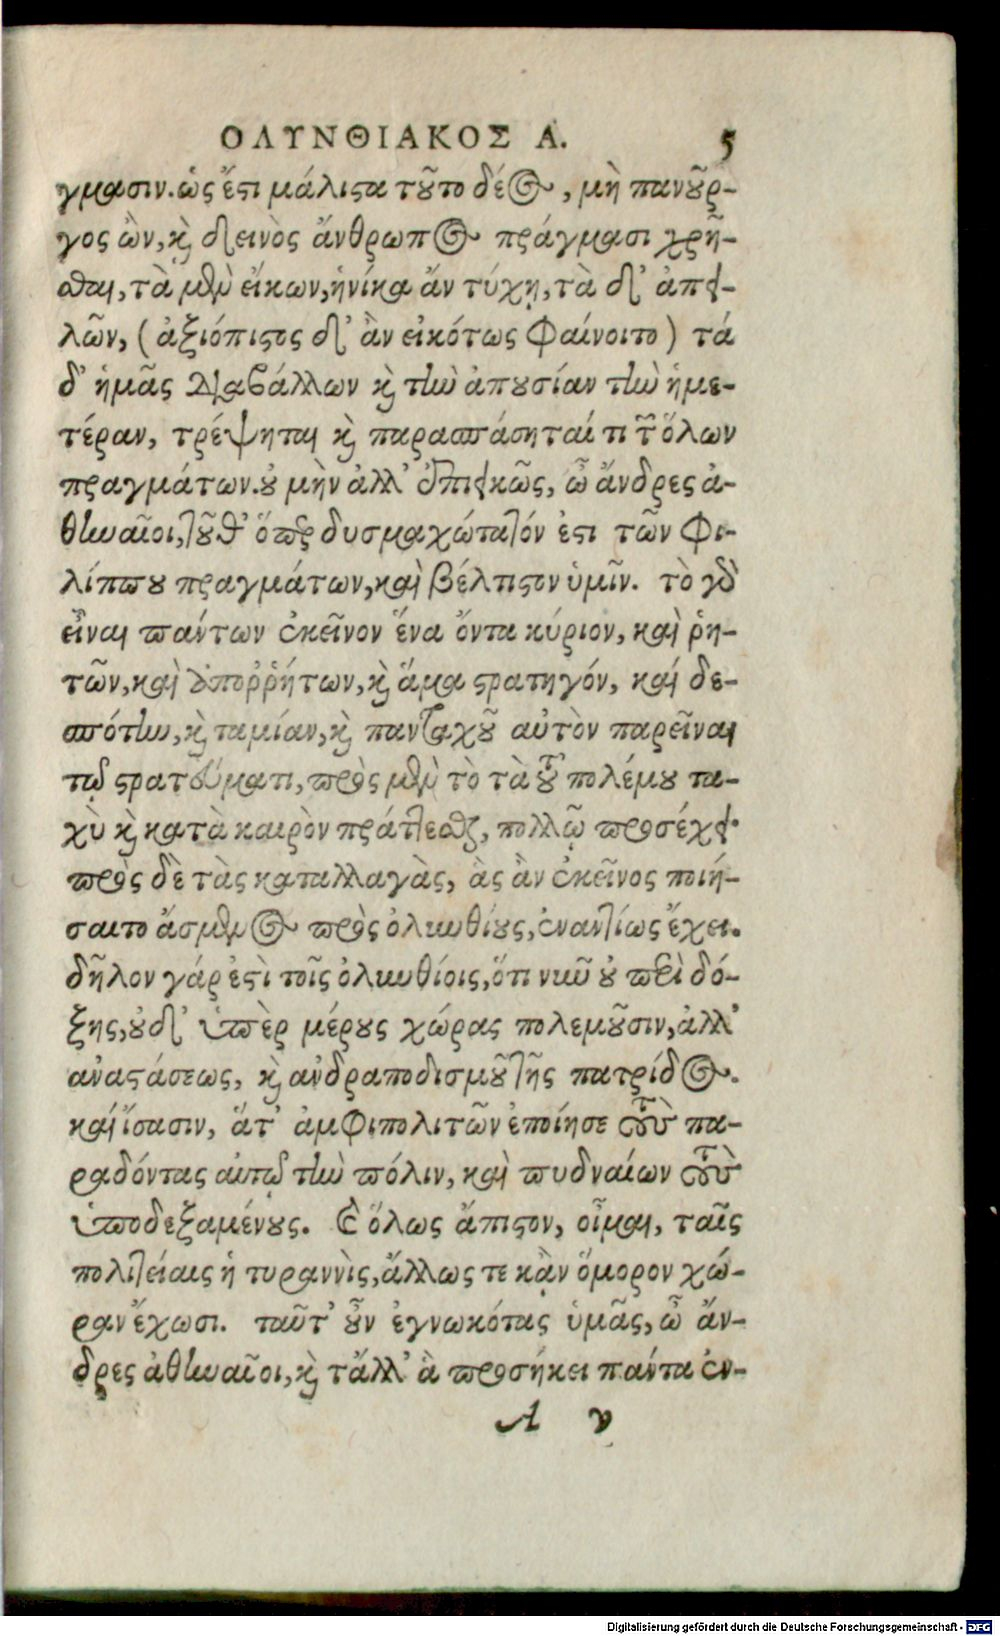 ΟΛΥΝΘΙΑΚΟΣ Α. 5
γμασιν. ὡς ἔστι μάλιστα τοῦτο δέος, μὴ πανοῦρ-
γος ὢν, καὶ δεινὸς ἄνθρωπος πράγμασι χρῆ-
σθαι, τὰ μὲν εἴκων, ἡνίκα ἄν τύχῃ, τὰ δ’ ἀπει-
λῶν, (ἀξιόπιστος δ’ ἂν εἰκότως φαίνοιτο) τά
δ’ ἡμᾶς διαβάλλων καὶ τὴν ἀπουσίαν τὴν ἡμε-
τέραν, τρέψηται καὶ παρασπάσηταί τι τῶν ὅλων
πραγμάτων. οὐ μὴν ἀλλ’ ἐπιεικῶς, ὦ ἄνδρες ἀ-
θηναῖοι, τοῦθ’ ὅπερ δυσμαχώτατόν ἐστι τῶν Φι-
λίππου πραγμάτων, καὶ βέλτιστον ὑμῖν. τὸ γὰρ
εἶναι πάντων ἐκεῖνον ἕνα ὄντα κύριον, καὶ ῥη-
τῶν, καὶ ἀποῤῥήτων, καὶ ἅμα στρατηγόν, καί δε-
σπότην, καὶ ταμίαν, καὶ πανταχοῦ αὐτὸν παρεῖναι
τῷ στρατεύματι, πρὸς μὲν τὸ τὰ τοῦ πολέμου τα-
χὺ καὶ κατὰ καιρὸν πράττεσθαι, πολλῷ προσέχει·
πρὸς δὲ τὰς καταλλαγὰς, ἃς ἂν ἐκεῖνος ποιή-
σαιτο ἄσμενος πρὸς ὀλυνθίους, ἐναντίως ἔχει.
δῆλον γάρ ἐστὶ τοῖς ὀλυνθίοις, ὅτι νῦν οὐ περὶ δό-
ξης, οὐδ’ ὑπὲρ μέρους χώρας πολεμοῦσιν, ἀλλ’
ἀναστάσεως, καὶ ἀνδραποδισμοῦ τῆς πατρίδος.
καί ἴσασιν, ἅτ’ ἀμφιπολιτῶν ἐποίησε τοὺς πα-
ραδόντας αὐτῷ τὴν πόλιν, καὶ πυδναίων τοὺς
ὑποδεξαμένους. καὶ ὅλως ἄπιστον, οἶμαι, ταῖς
πολιτείαις ἡ τυραννὶς, ἄλλως τε κἂν ὅμορον χώ-
ραν ἔχωσι. ταῦτ’ οὖν ἐγνωκότας ὑμᾶς, ὦ ἄν-
δρες ἀθηναῖοι, καὶ τἄλλ’ ἃ προσήκει πάντα ἐν-
A v
Digitalisierung gefördert durch die Deutsche Forschungsgemeinschaft - DFG